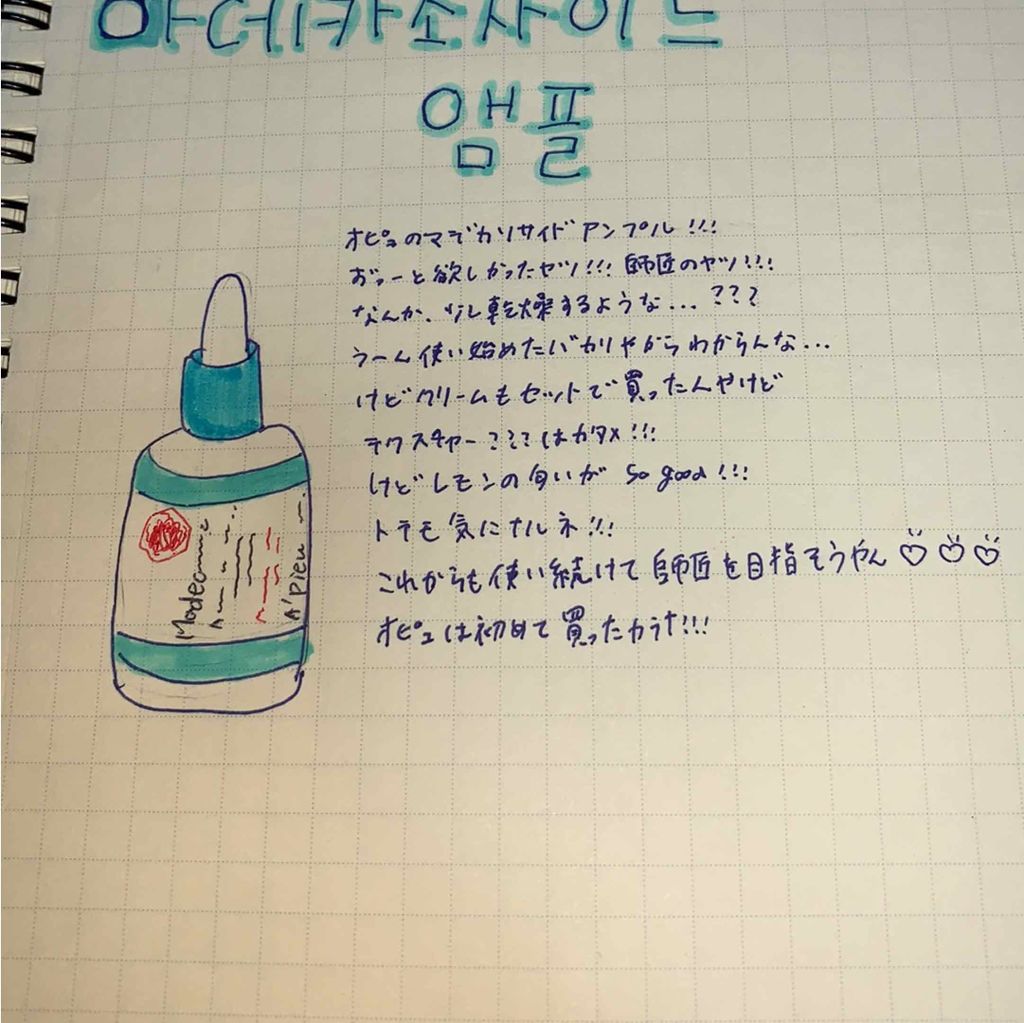 마데카소사이드
앰플
オピュのマデカソサイドアンプル!!!
ずっーと欲しかったヤツ!!! 師匠のヤツ!!!
なんか、少し乾燥するような... ???
うーん使い始めたバカリやからわからんな...
けどクリームもセットで買ったんやけど
テクスチャー???はカタメ!!!
けどレモンの匂いが So good!!!
トテモ気にナルネ!!!
これからも使い続けて師匠を目指そうやん♡♡♡
オピュは初めて買ったカラナ!!!
Madecassic
A'pieu